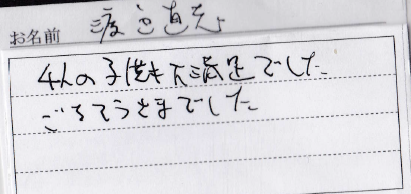 お名前 渡邉直
4人の子供も大満足でした
ごちそうさまでした